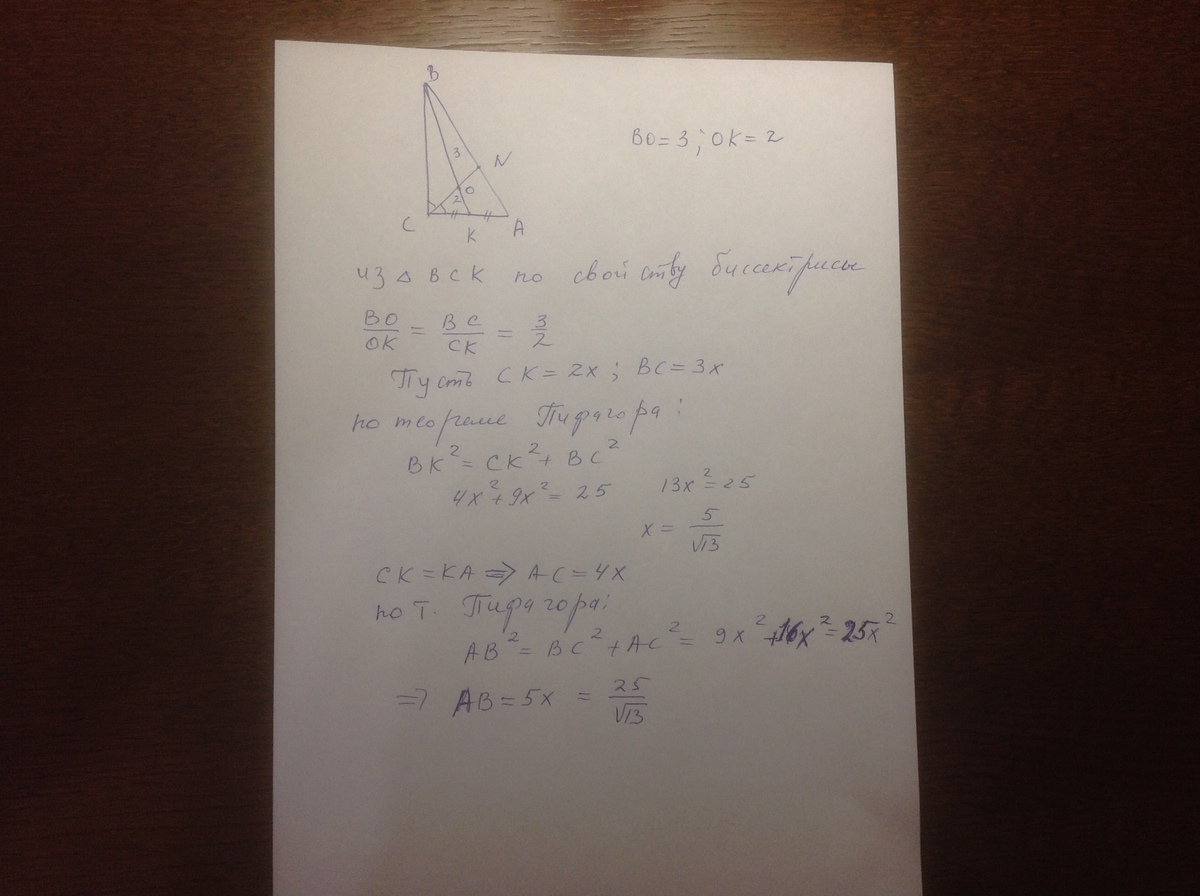 B
3
N
O
2
C
K
A
BO = 3 ; OK = 2
из △ BCK по свойству биссектрисы
BO/OK = BC/CK = 3/2
Пусть CK = 2x ; BC = 3x
по теореме Пифагора :
BK² = CK² + BC²
4x² + 9x² = 25 13x² = 25
x = 5/√13
CK = KA => AC = 4x
по т. Пифагора:
AB² = BC² + AC² = 9x² + 16x² = 25x²
=> AB = 5x = 25/√13